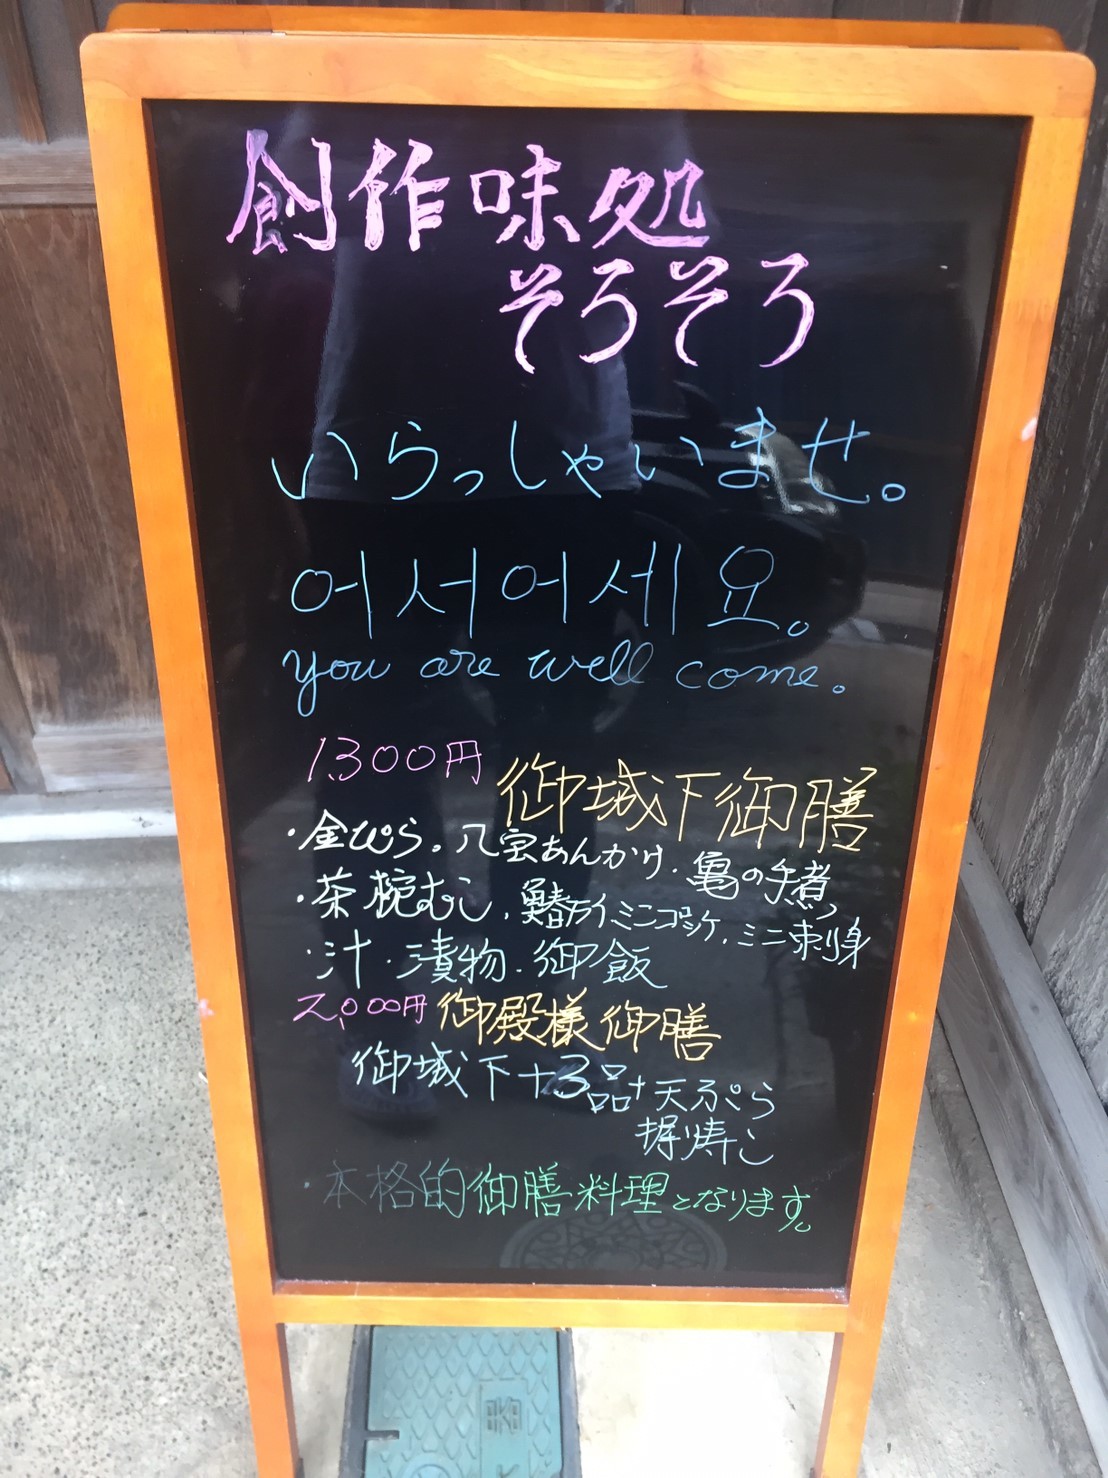 創作味処
そろそろ
いらっしゃいませ。
어서어세요。
you are well come.
1,300円 御城下御膳
・金ぴら。八宝あんかけ・亀の手煮
・茶椀むし、鰆フライミニコロッケ、ミニ刺身
・汁・漬物・御飯
2,000円 御殿様御膳
御城下+3品+天ぷら
・本格的御膳料理となります。